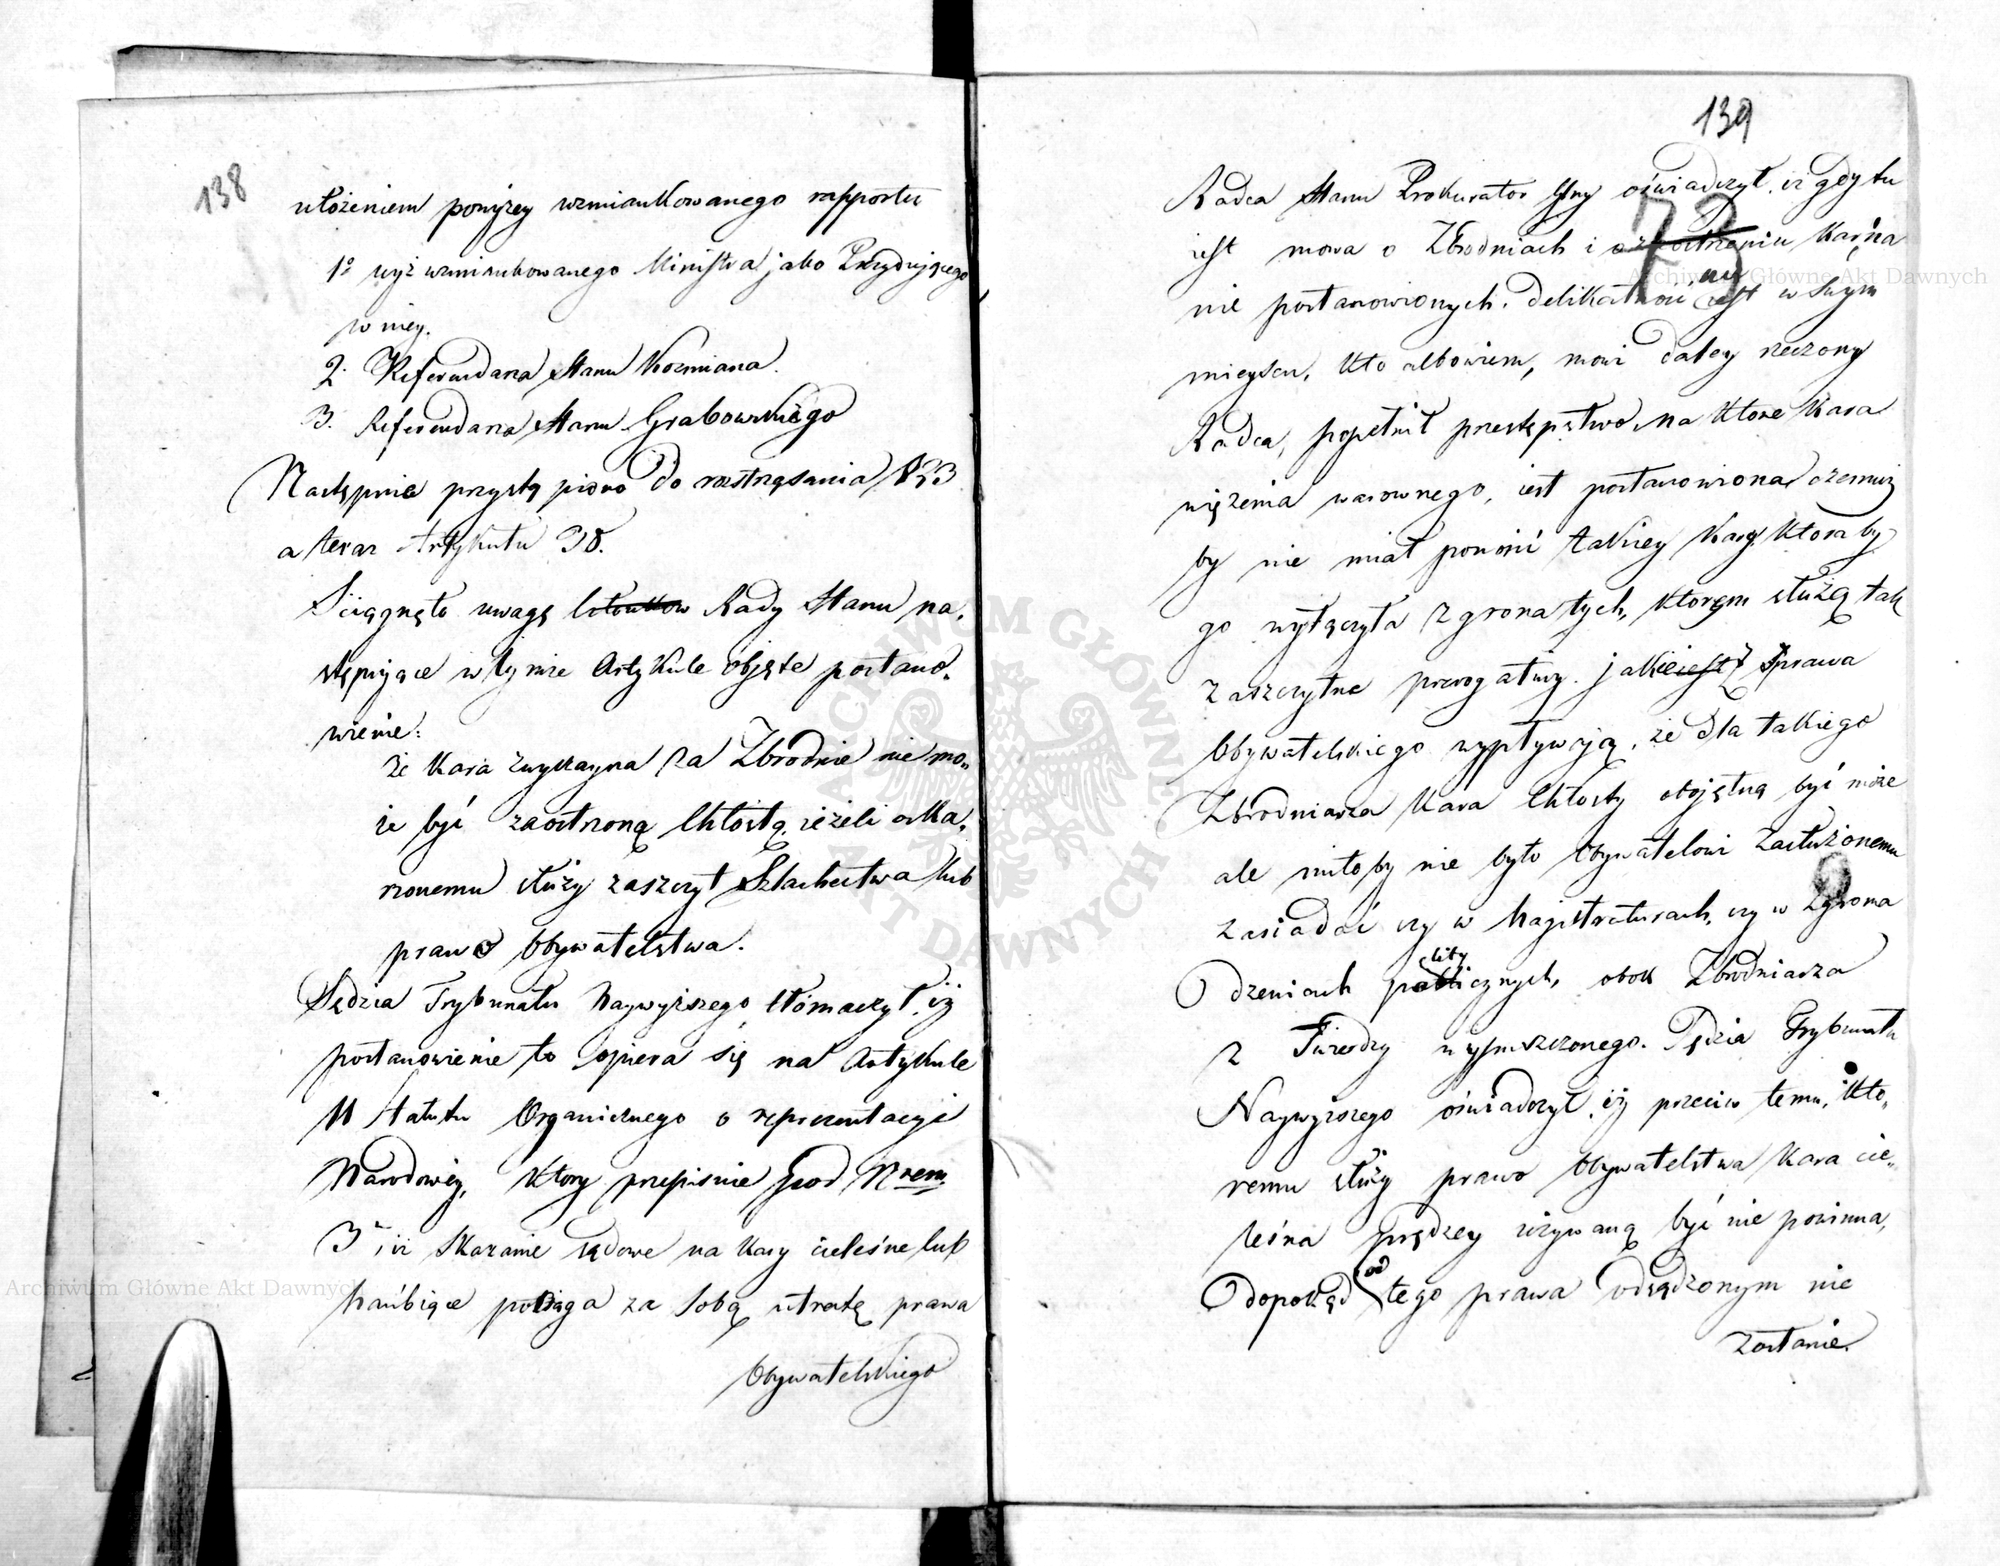 138
ułożeniem poniżey wzmiankowanego rapportu
1º wyż wzmiankowanego Ministra jako Prezydującego
w niey.
2. Referendarza Stanu Koźmiana.
3. Referendarza Stanu Grabowskiego
Następnie przystąpiono do roztrząsania, §33
a teraz Artykułu 38.
Sciągnęło uwagę członków Rady Stanu na-
stępujące w tymże Artykule objęte postano-
wienie:
że Kara zwyczayna za Zbrodnie nie mo-
że być zaostrzoną Chłostą, jeżeli oska-
rzonemu służy zaszczyt Szlachectwa lub
prawo Obywatelstwa.
Sędzia Trybunału Naywyższego, tłómaczył, iż
postanowienie to opiera się na Artykule
11 Statutu Organicznego o reprezentacyi
Narodowéy, który przepisuie pod Nrem
3, iż skazanie sądowe na kary cieleśne lub
hańbiące pociąga za sobą utratę prawa
Obywatelskiego
139
73
Radca Stanu Prokurator Gny oświadczył, iż gdy tu
iest mowa o Zbrodniach i kar na
nie postanowionych, delikatność iest w swym
mieyscu, Kto albowiem, mówi daley rzeczony
Radca, popełnił przestępstwo, na które Kara
więzienia warownego, iest postanowiona, czemuż
by nie miał ponosić takiey Kary, któraby
go wyłączyła z grona tych, którym służą tak
zaszczytne prerogatiwy. jakie iest z prawa
Obywatelskiego wypływają, że dla takiego
Zbrodniarza Kara Chłosty obojętną być może
ale miłoby nie było Obywatelowi Zasłużonemu
zasiadać czy w Magistraturach, czy w Zgroma
dzeniach publicznych, obok Zbrodniarza
lity
z Twierdzy wypuszczonego. Sędzia Trybunału
Naywyższego oświadczył, iż przeciw temu, Kto-
remu służy prawo Obywatelstwa Kara cie-
leśna prędzey używaną być nie powinna,
Dopokąd od tego prawa odsądzonym nie
zostanie.
Archiwum Główne Akt Dawnych
Archiwum Główne Akt Dawnych
ARCHIWUM GŁÓWNE AKT DAWNYCH